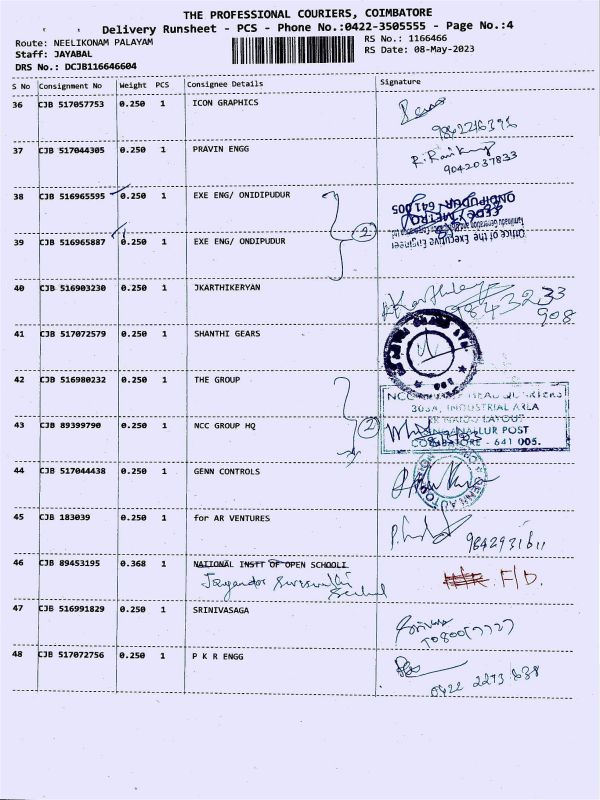 THE PROFESSIONAL COURIERS, COIMBATORE
Delivery Runsheet - PCS - Phone No.:0422-3505555 - Page No.:4
Route: NEELIKONAM PALAYAM
RS No.: 1166466
Staff: JAYABAL
RS Date: 08-May-2023
DRS No.: DCJB116646604
S No Consignment No Weight PCS Consignee Details Signature
36 CJB 517057753 0.250 1 ICON GRAPHICS
37 CJB 517044305 0.250 1 PRAVIN ENGG
9042037833
38 CJB 516965595 0.250 1 EXE ENG/ ONIDIPUDUR
ONDIPUDUR 641 005
CEDC / METRO
2
Office of the Executive Engineer
39 CJB 516965887 0.250 1 EXE ENG/ ONIDIPUDUR
40 CJB 516903230 0.250 1 JKARTHIKERYAN
908
41 CJB 517072579 0.250 1 SHANTHI GEARS
42 CJB 516980232 0.250 1 THE GROUP
308A, INDUSTRIAL AREA
43 CJB 89399790 0.250 1 NCC GROUP HQ
2
COIMBATORE - 641 005.
44 CJB 517044438 0.250 1 GENN CONTROLS
45 CJB 183039 0.250 1 for AR VENTURES
46 CJB 89453195 0.368 1 NATIONAL INSTT OF OPEN SCHOOLI
F/D.
47 CJB 516991829 0.250 1 SRINIVASAGA
48 CJB 517072756 0.250 1 P K R ENGG